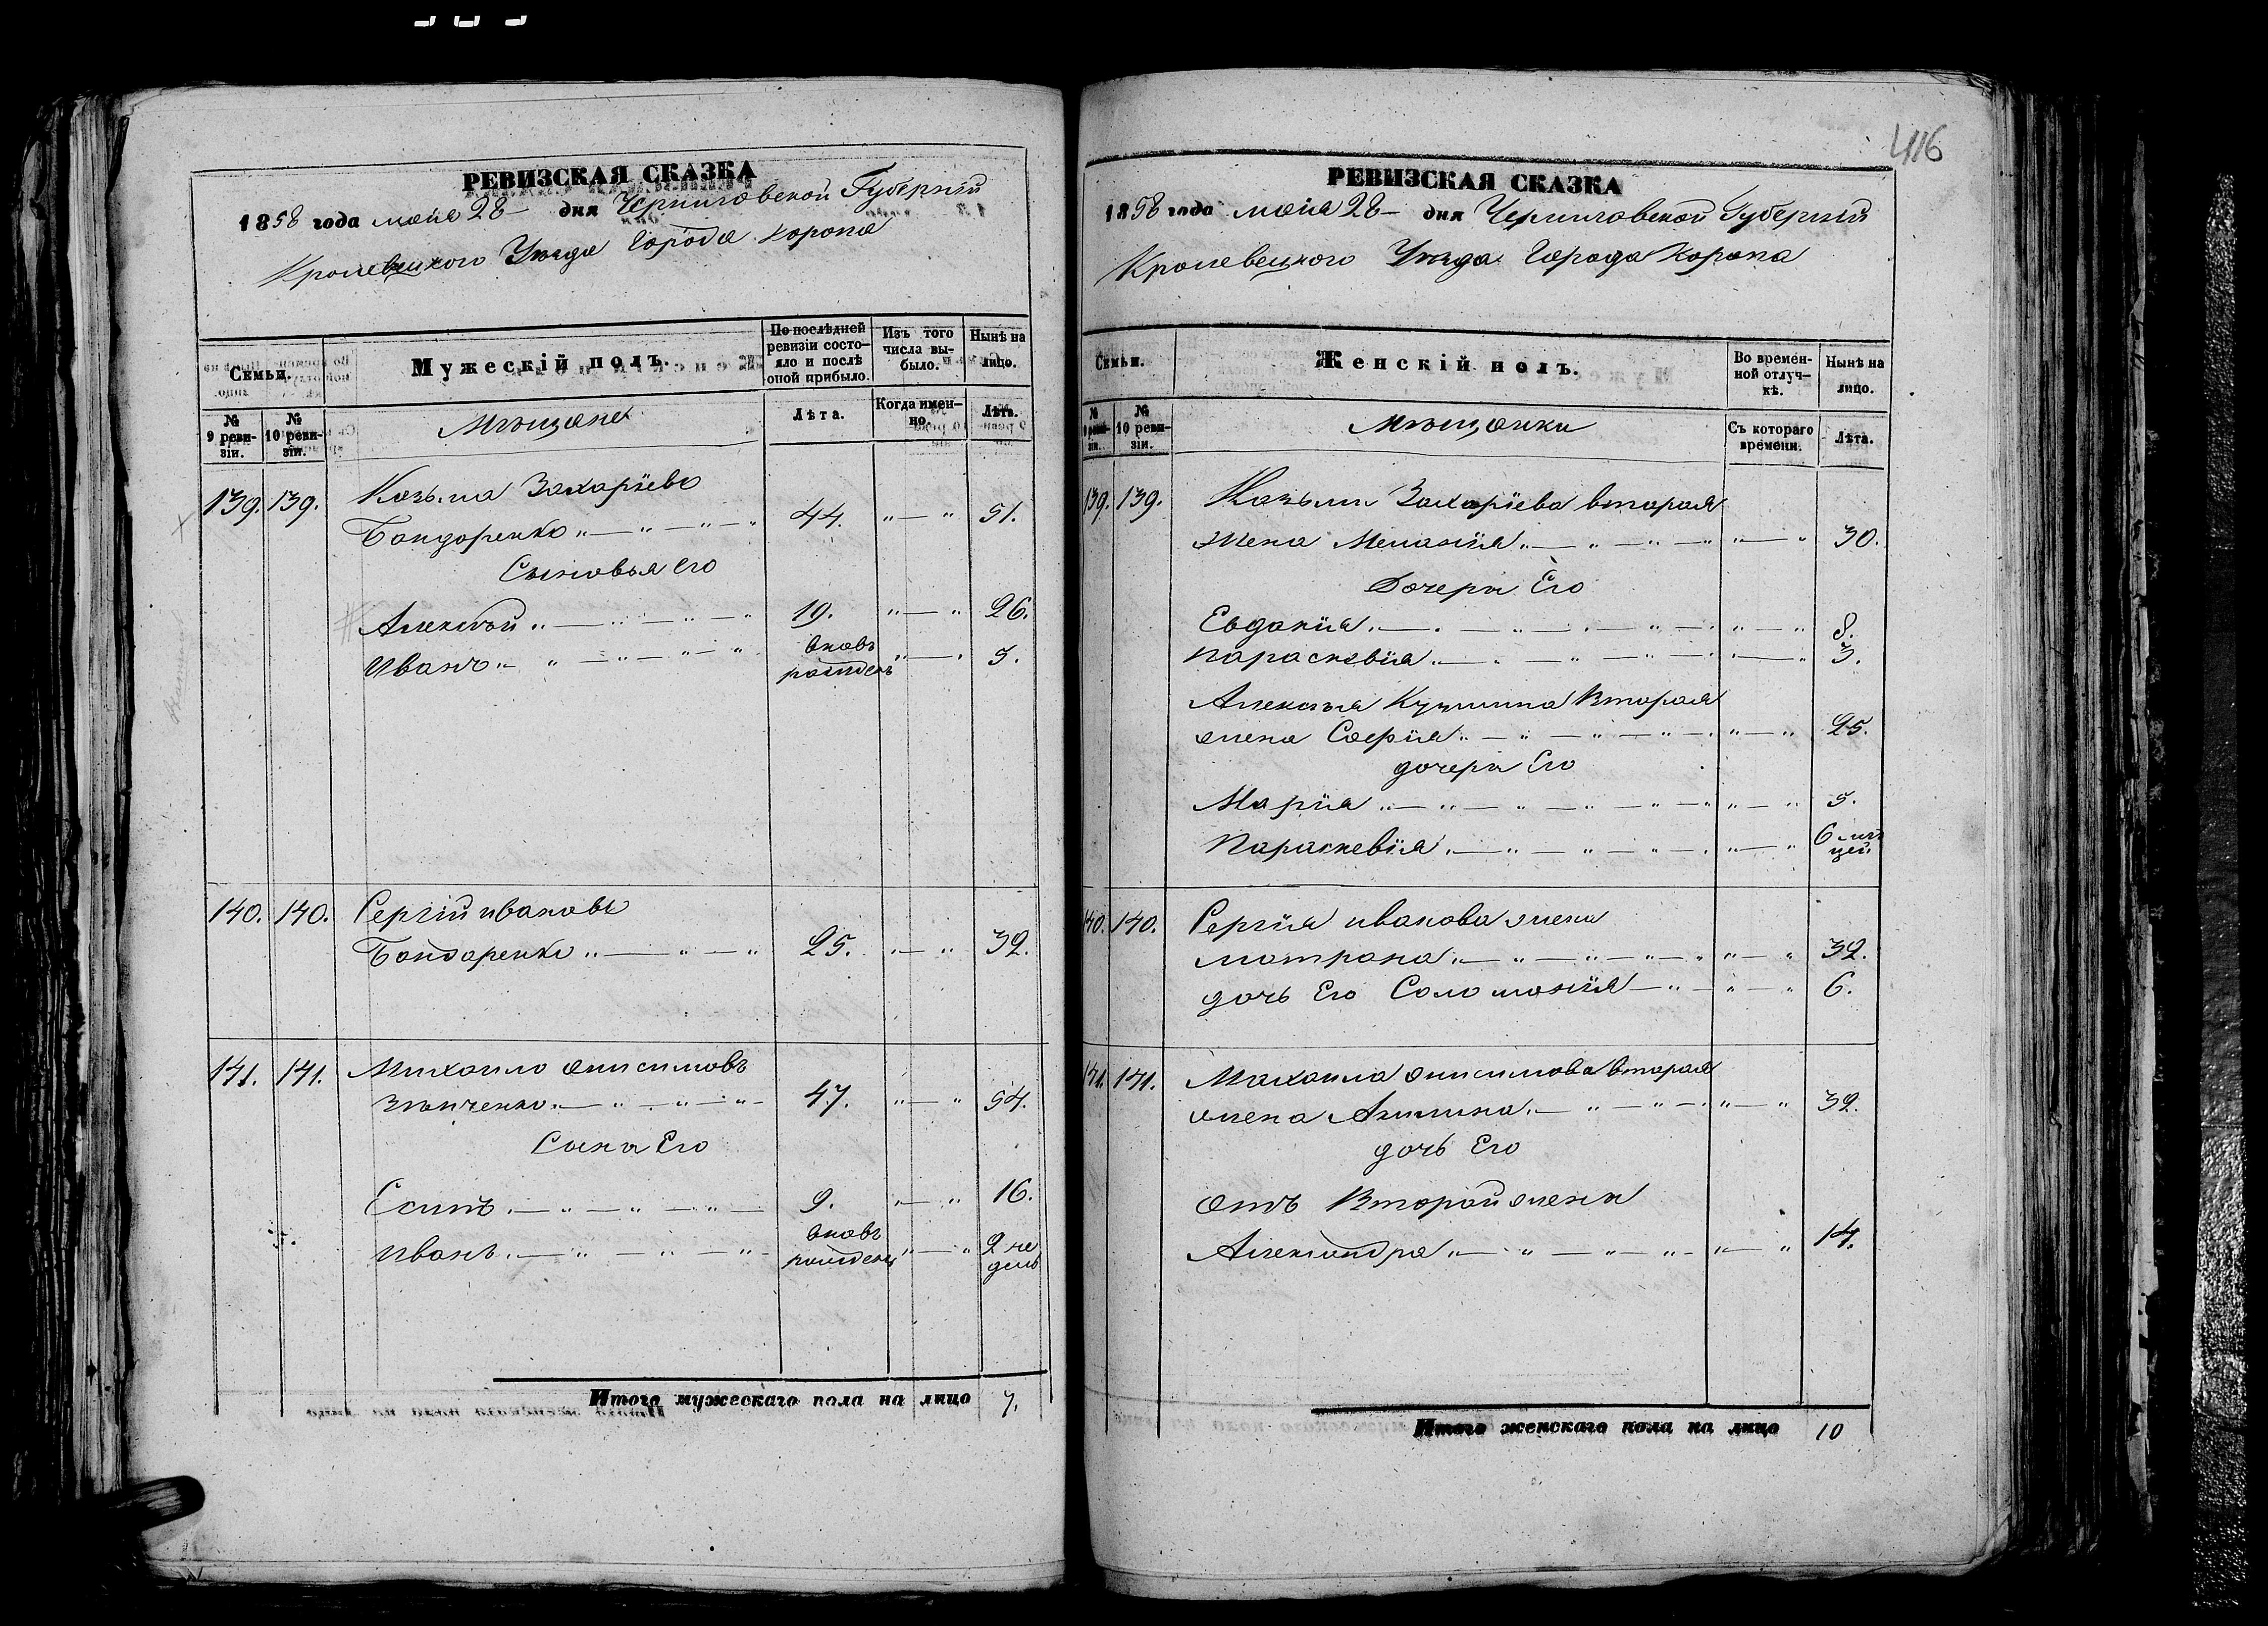 РЕВИЗСКАЯ СКАЗКА
1858 года мая 28 дня Черниговской Губерніи
Кролевецкого Уезда Города Коропа
Семьи.
Мужескій полъ.
По послѣдней ревизіи состояло и послѣ оной прибыло.
Изъ того числа выбыло.
Нынѣ на лицо.
№ 9 ревизіи.
№ 10 ревизіи.
Мѣщане
Лѣта.
Когда именно.
Лѣта.
139. 139. Козьма Захаріевъ
Бондаренко 44. 51.
Сыновья Его
Алексѣй 19. 26.
Иванъ вновь рожденъ 3.
140. 140. Сергій Ивановъ
Бондаренко 25. 32.
141. 141. Михаило Онисимовъ
47. 54.
Сыны Его
Есипъ 9. 16.
Иванъ вновь рожденъ 2 недель
Итого мужескаго пола на лицо 7.
416
РЕВИЗСКАЯ СКАЗКА
1858 года мая 28 дня Черниговской Губерніи
Кролевецкого Уезда Города Коропа
Семьи.
Женскій полъ.
Во временной отлучкѣ.
Нынѣ на лицо.
№ 9 ревизіи.
№ 10 ревизіи.
Мѣщанки
Съ котораго времени.
Лѣта.
139. 139. Козьмы Захаріева вторая
жена Меланія 30.
Дочери Его
Евдокія 8.
Параскевія 3.
Алексѣя Кузьмина Вторая
жена Софія 25.
дочери Его
Марія 5.
Параскевія 6 мѣцей
140. 140. Сергія Иванова жена
Мотрона 32.
дочь Его Соломонія 6.
141. 141. Михаила Онисимова вторая
жена Акилина 32.
дочь Его
Отъ Второй жены
Александра 14.
Итого женскаго пола на лицо 10